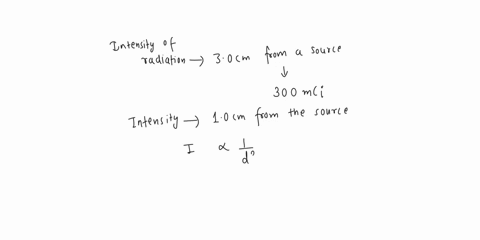 Intensity of
radiation → 3.0cm from a source
↓
300 mCi
Intensity → 1.0cm from the source
I ∝ 1/d²